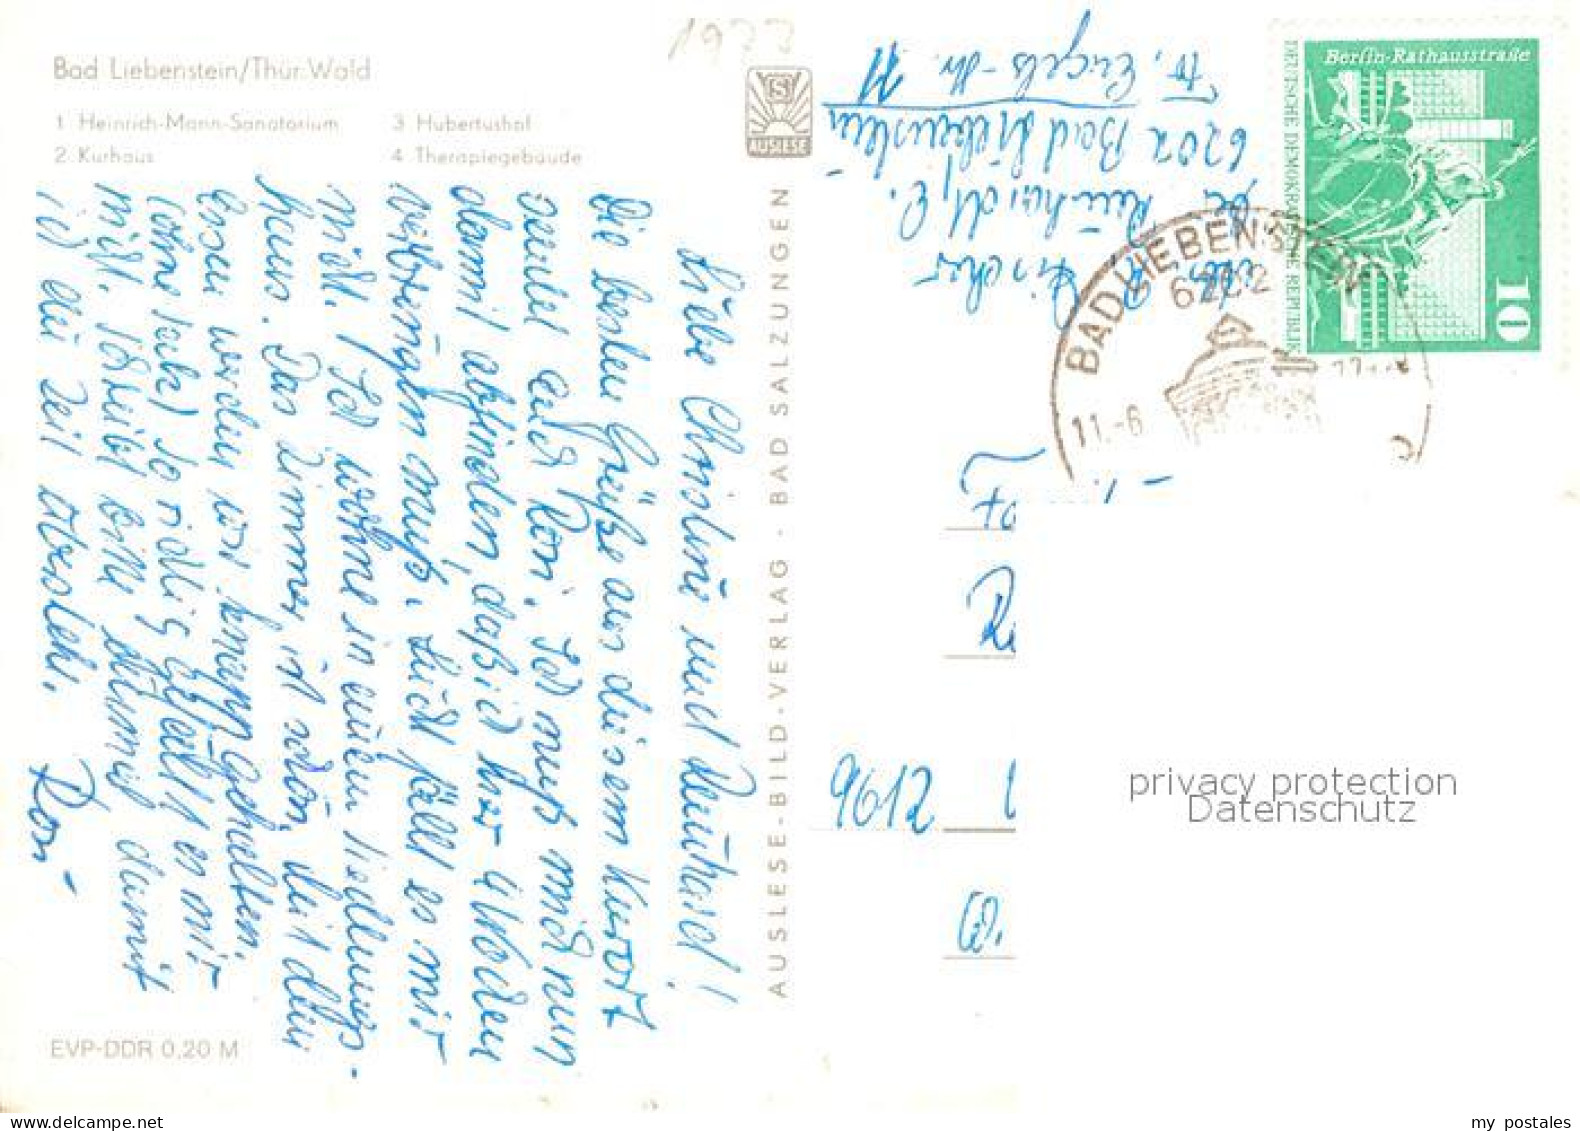 Bad Liebenstein/Thür. Wald
1 Heinrich-Mann-Sanatorium
2. Kurhaus
3 Hubertushof
4 Therapiegebäude
1977
AUSLESE
Liebe Christine und Reinhard!
Die besten Grüße aus diesem Kurort
sendet euch Rosi. Ich muß mich nun
damit abfinden, daß ich hier 4 Wochen
verbringen muß. Leicht fällt es mir
nicht. Ich wohne in einem Siedlungs-
haus. Das Zimmer ist schön, mit dem
Essen werden wir knapp gehalten.
(ohne Salz) So richtig gefällt es mir
nicht. Schreibt bitte einmal damit
ich die Zeit
Rosi -
EVP-DDR 0,20 M
AUSLESE-BILD-VERLAG - BAD SALZUNGEN
Fischer
bei Reinhardt, E.
6202 Bad Liebenstein
Fr. Engels-Str. 11
Berlin-Rathausstraße
DEUTSCHE DEMOKRATISCHE REPUBLIK
10
BAD LIEBENSTEIN
6202
11.-6
9612
privacy protection
Datenschutz
my postales